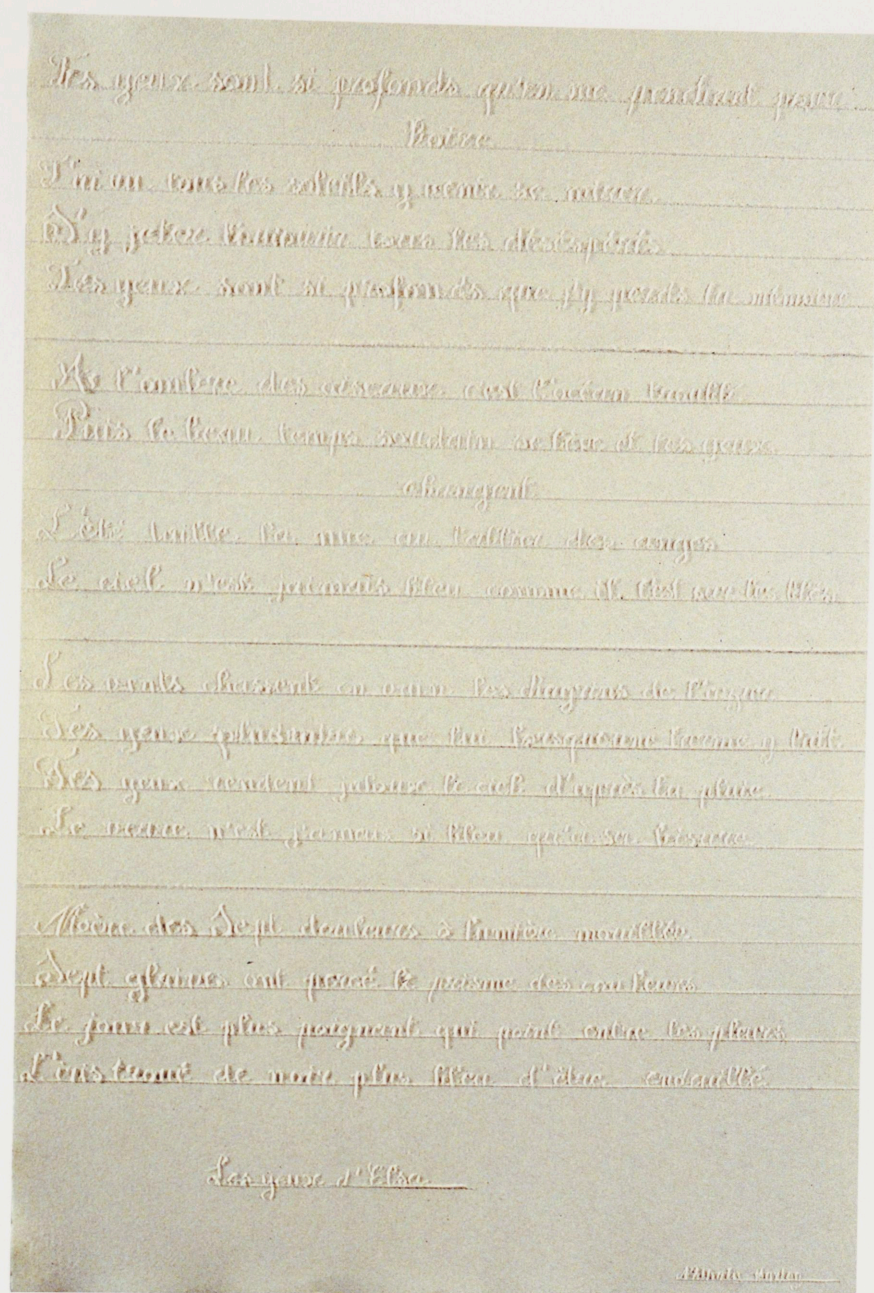 Tes yeux sont si profonds qu'en me penchant pour
boire
J'ai vu tous les soleils y venir se mirer
S'y jeter à mourir tous les désespérés
Tes yeux sont si profonds que j'y perds la mémoire
A l'ombre des oiseaux c'est l'océan troublé
Puis le beau temps soudain se lève et tes yeux
changent
L'été taille la nue au tablier des anges
Le ciel n'est jamais bleu comme il l'est sur les blés
Les vents chassent en vain les chagrins de l'azur
Tes yeux plus clairs que lui lorsqu'une larme y luit
Tes yeux rendent jaloux le ciel d'après la pluie
Le verre n'est jamais si bleu qu'à sa brisure
Mère des Sept douleurs ô lumière mouillée
Sept glaives ont percé le prisme des couleurs
Le jour est plus poignant qui point entre les pleurs
L'iris troué de noir plus bleu d'être endeuillé
Les yeux d'Elsa